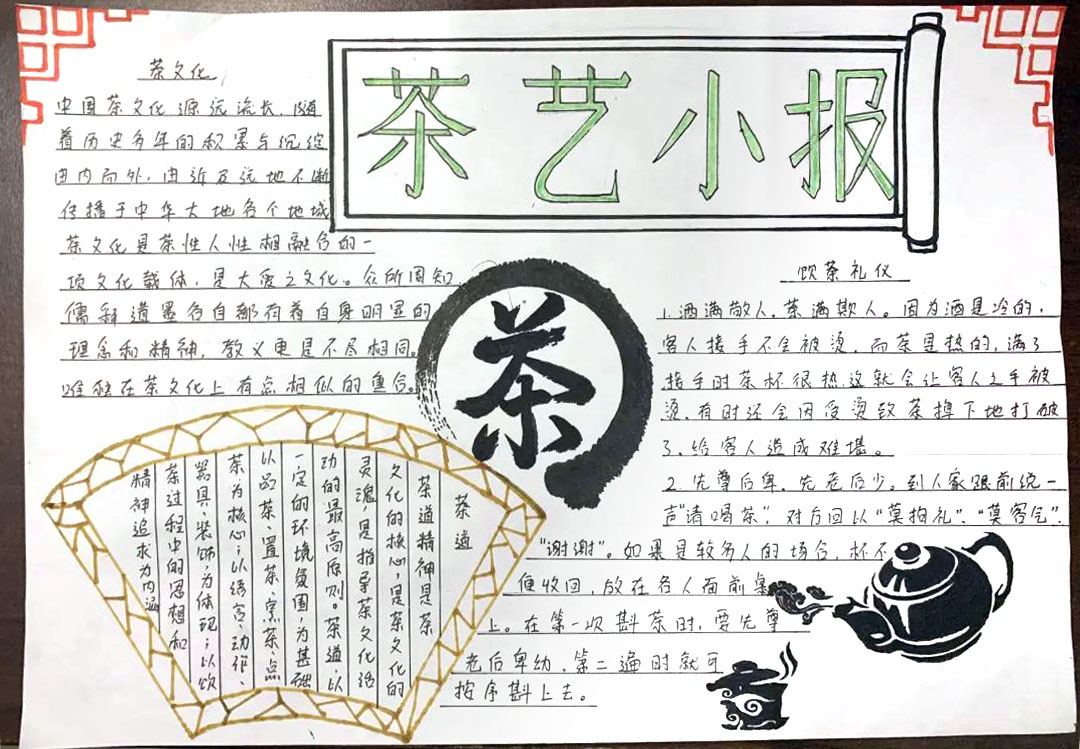 茶艺小报
茶文化
中国茶文化源远流长,随
着历史多年的积累与沉绽
由内而外,由近及远地不断
传播于中华大地各个地域
茶文化是茶性人性相融合的一
项文化载体,是大爱之文化。众所周知,
儒释道墨各自都有着自身明显的
理念和精神,教义更是不尽相同。
唯独在茶文化上有点相似的重合。
茶
茶道
茶道精神是茶
文化的核心,是茶文化的
灵魂,是指导茶文化活
动的最高原则。茶道,以
一定的环境氛围,为基础
以品茶、置茶、烹茶、点
茶为核心;以语言、动作、
器具、装饰,为体现;以饮
茶过程中的思想和
精神追求为内涵
饮茶礼仪
1.酒满敬人,茶满欺人。因为酒是冷的,
客人接手不会被烫,而茶是热的,满了
接手时茶杯很热,这就会让客人之手被
烫,有时还会因受烫致茶掉下地打破
了,给客人造成难堪。
2.先尊后卑,先老后少。到人家跟前说一
声“请喝茶”,对方回以“莫拘礼”、“莫客气”、
“谢谢”。如果是较多人的场合,杯不
便收回,放在各人面前桌
上。在第一次斟茶时,要先尊
老后卑幼,第二遍时就可
按序斟上去。